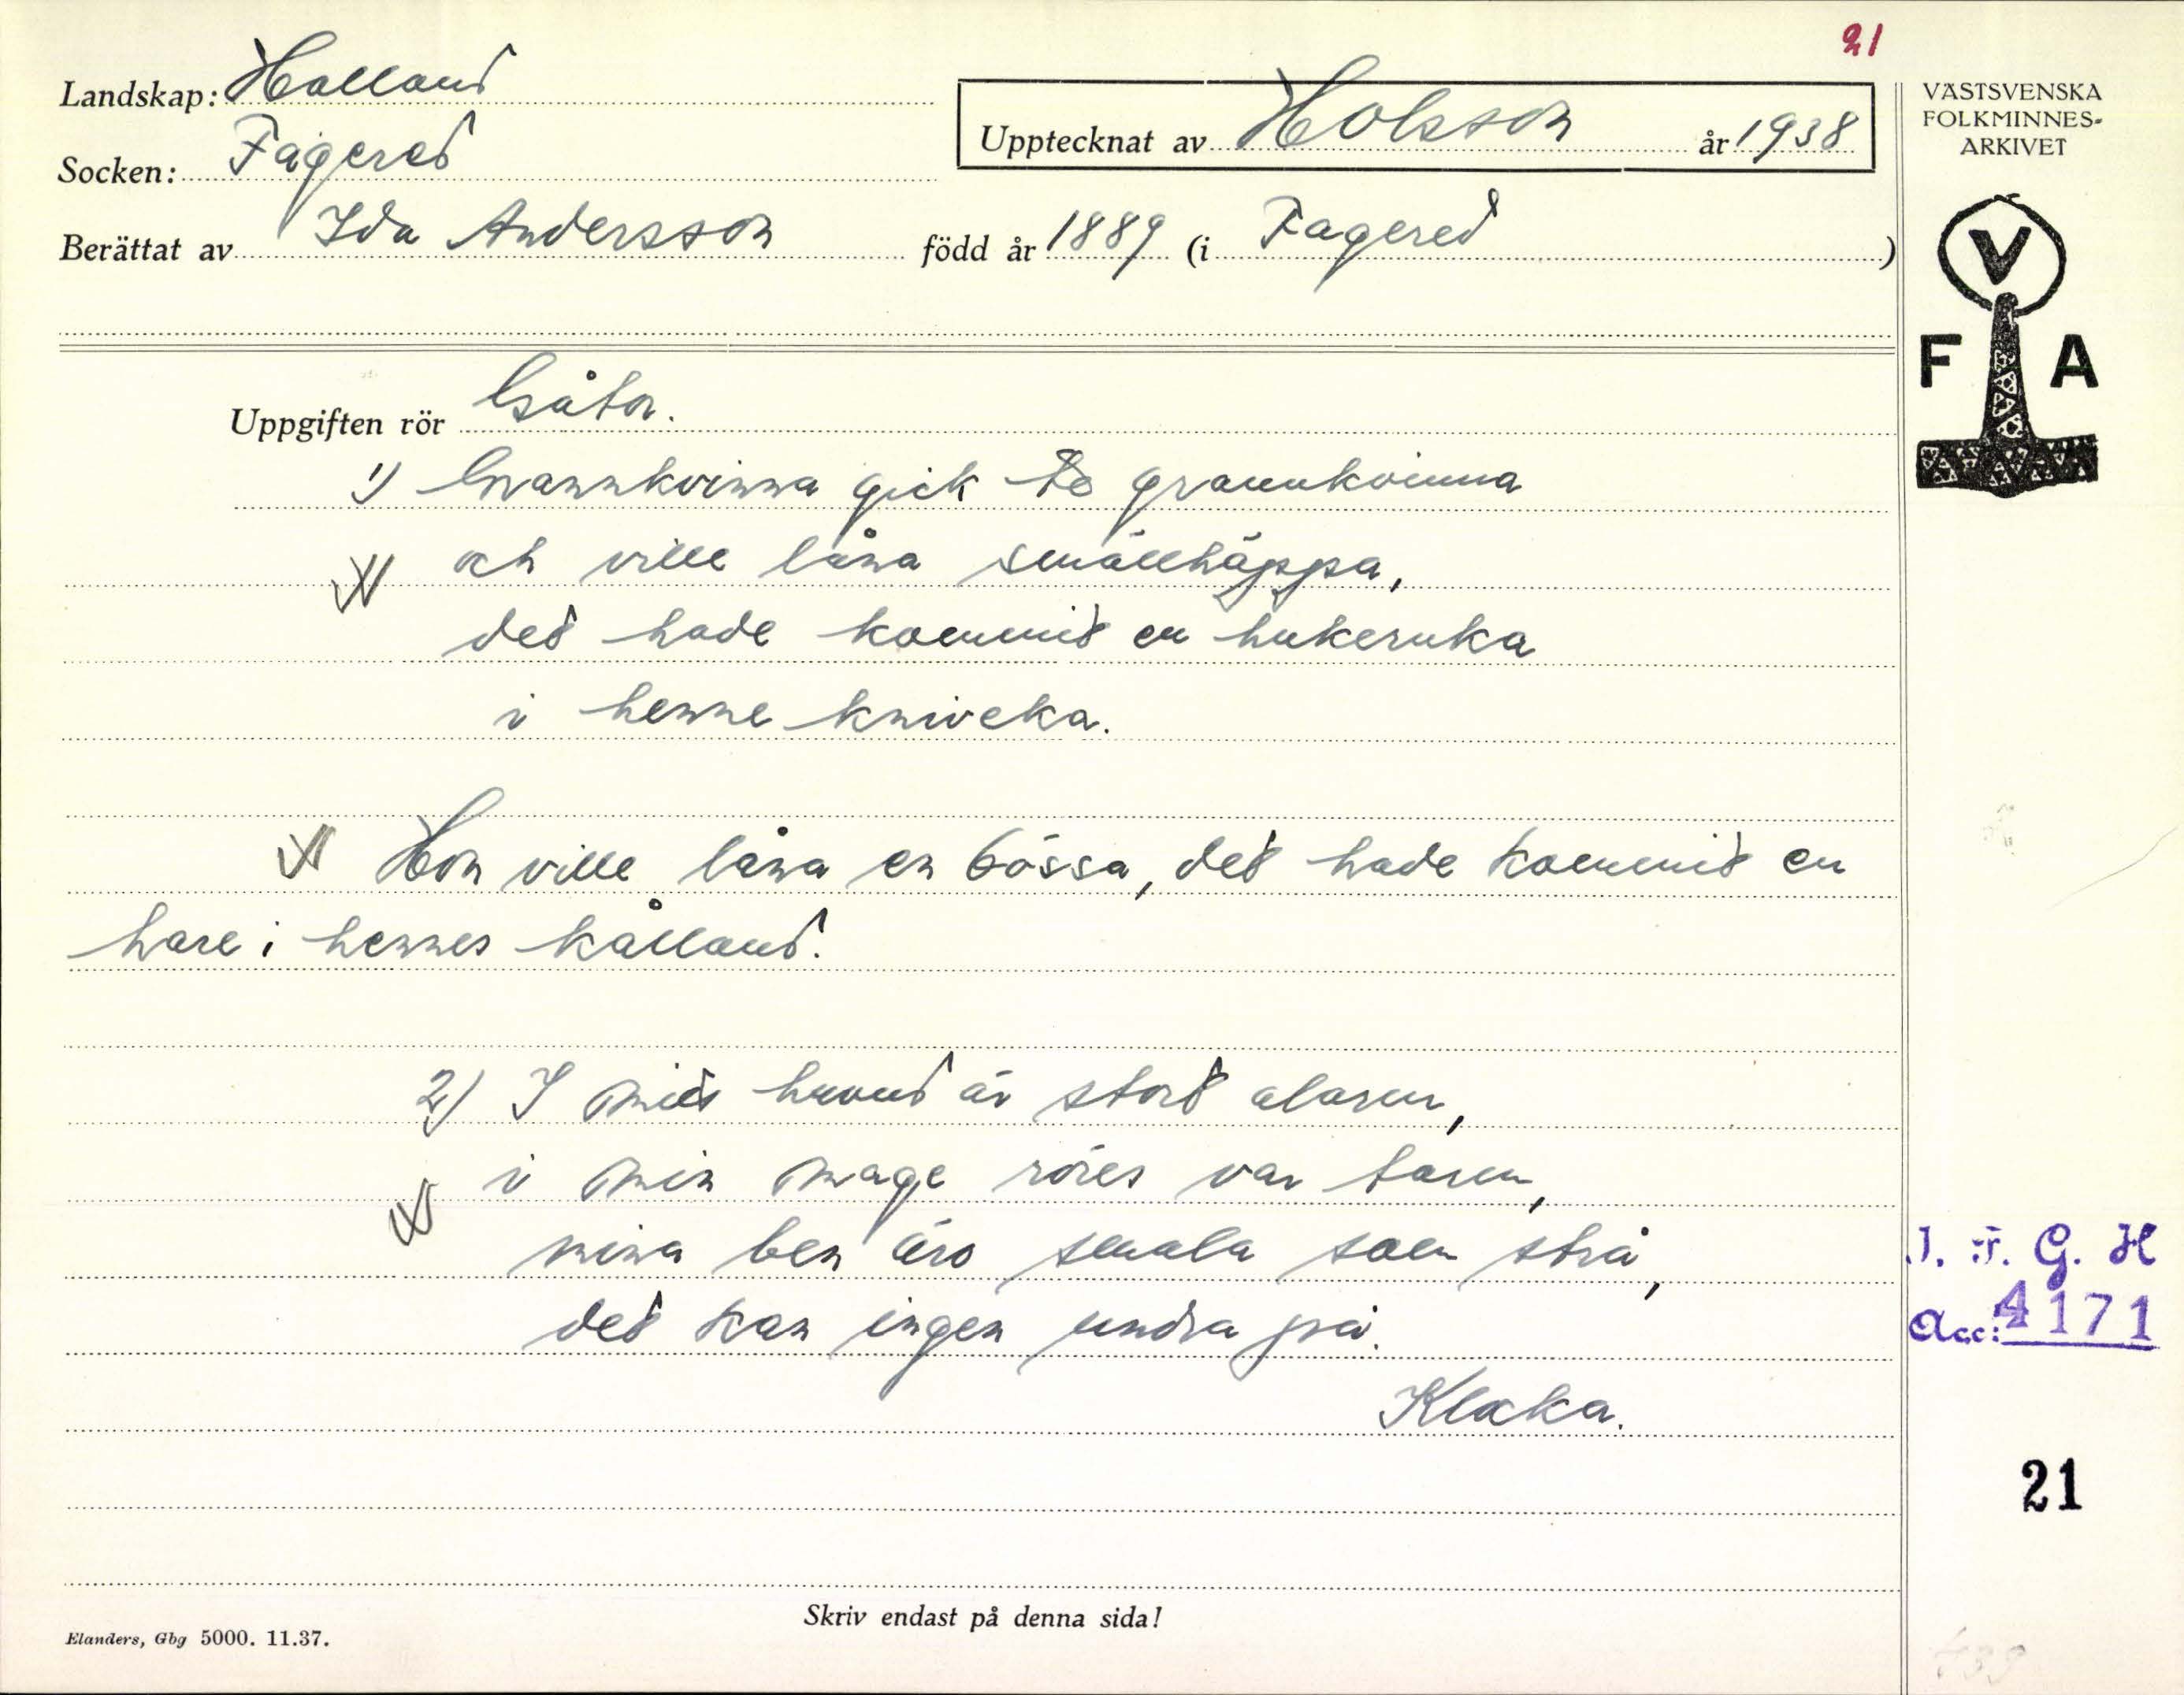 21
Landskap: Halland
Upptecknat av Holsson år 1938
Socken: Fagered
Berättat av Ida Andersson född år 1889 (i Fagered)
VÄSTSVENSKA
FOLKMINNES-
ARKIVET
V
F A
Uppgiften rör Gåtor.
1) Grannkvinna gick te grannkvinna
och ville låna smällhäppa,
det hade kommit en hukeruka
i henne kniveka.
Hon ville låna en bössa, det hade kommit en
hare i hennes kålland.
2) I mitt huvud är stort alarm,
i min mage röres var tarm,
mina ben äro smala som strå,
det kan ingen undra på.
Klocka.
I. F. G. H
Acc: 4171
21
Skriv endast på denna sida!
Elanders, Gbg 5000. 11.37.